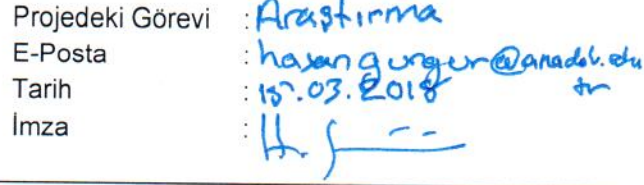 Projedeki Görevi : Araştırma
E-Posta : hasangurgur@anadolu.edu
tr
Tarih : 15.03.2018
İmza :